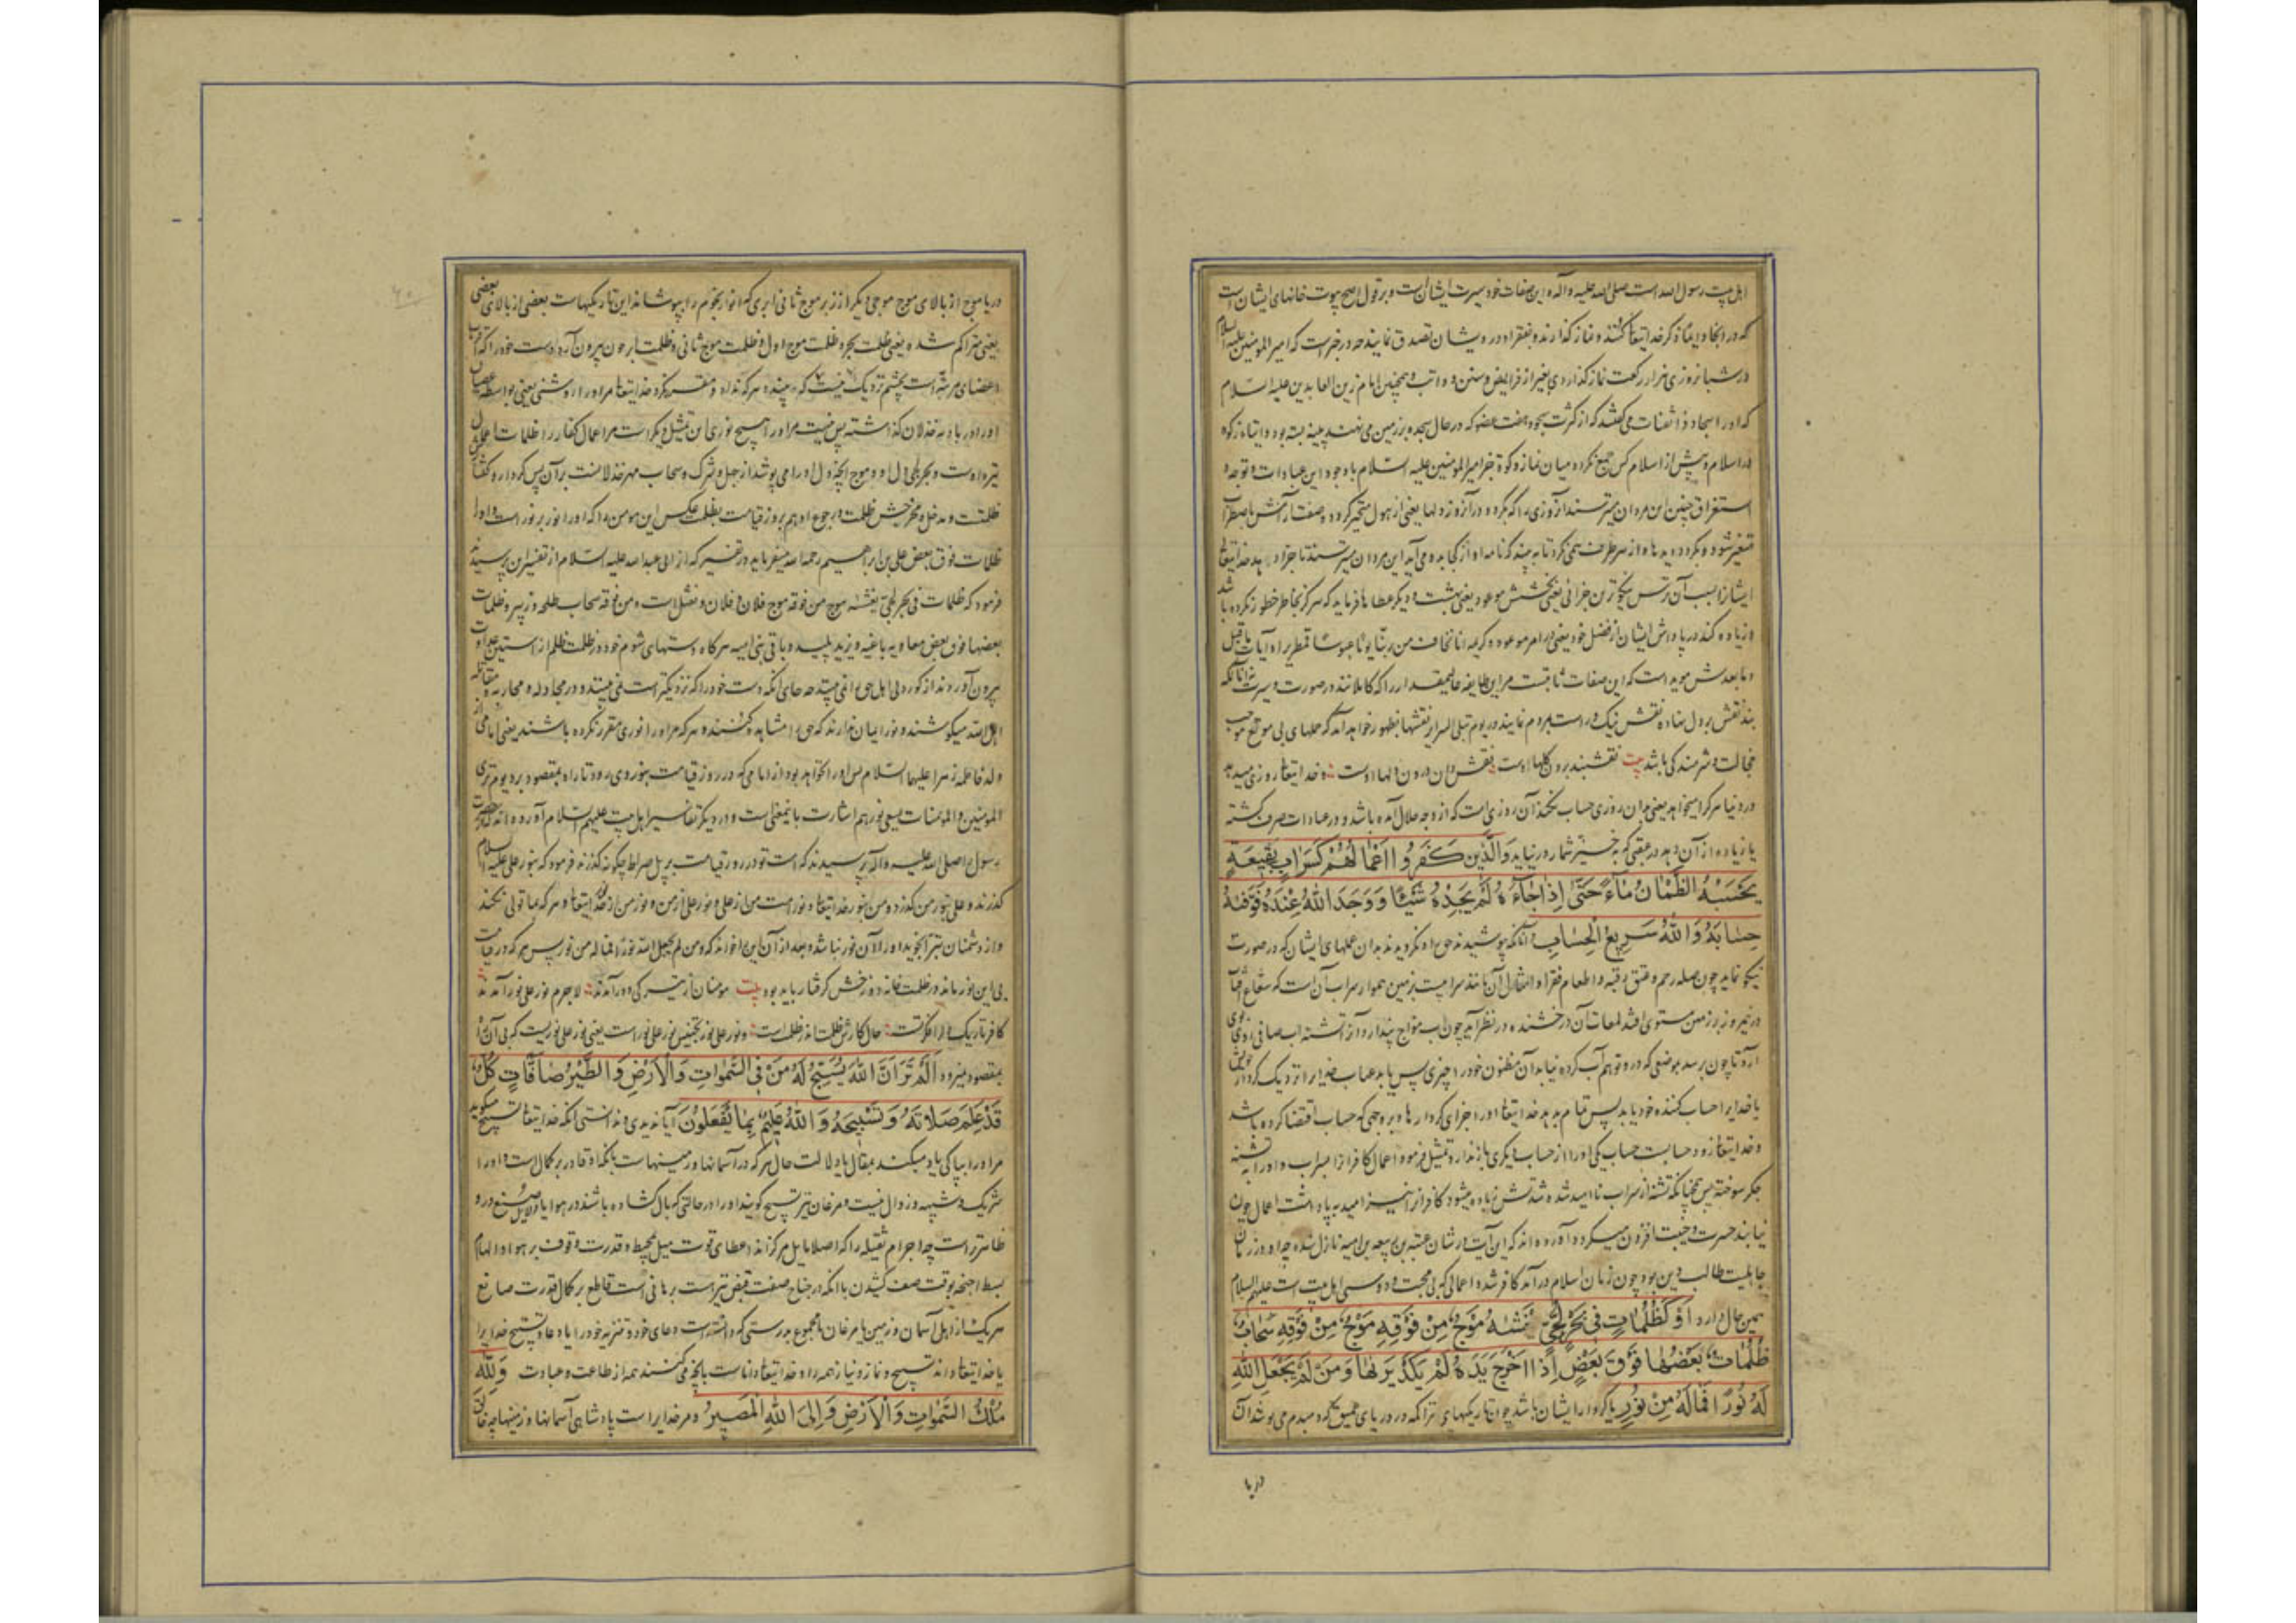 اهل بیت رسول الله است صلی الله علیه وآله این صفات خود سیرت ایشان است و بر قول اصح بیوت خانهای ایشان است
که در آنجا ذکر خدایتعا کنند و نماز گذارند و بفقرا و درویشان تصدق نمایند چه در خبر است که امیر المومنین علیه السلام
در شبانروزی هزار رکعت نماز گذاردی بغیر از فرایض و سنن و همچنین امام زین العابدین علیه السلام
که او را سجاد و ذا ثفنات می گفتند که از کثرت سجود هفت عضو که در حال سجده بر زمین می نهند پینه بسته بود و ایتاء زکوة
در اسلام و پیش از اسلام کس جمع نکرده میان نماز و زکوة جز امیر المومنین علیه السلام با وجود این عبادات و توجه و
استغراق چنین این مردان میترسند از روزی را که بگردد در آن روز دلها یعنی از هول متحیر گردد
متغیر شود و بگردد دیدها و از هر طرف می نگرد تا به بیند که نامه او از کجا بدو می آید این مردان میترسند تا جزا دهد خدایتعا
ایشانرا بسبب آن ترس نیکوترین جزائی یعنی بخشش موعود یعنی بهشت و دیگر عطاها فرماید که هرگز بخاطر خطور نکرده باشد
و زیاده کند در پاداش ایشان از فضل خود یعنی از امر موعود و کریمه انا نخاف من ربنا یوما عبوسا قمطریرا و آیات ما قبل
و ما بعدش موید است که این صفات ثابتست مر این طایفه عالیمقدار را که کاملانند در صورت و سیرت
نقش بر دل نهاده نقش نیک و راست بمردم نمایند در یوم تبلی السرایر نقشها بظهور خواهد آمد که عملهای بی موقع موجب
خجالت و شرمندگی باشد بیت نقشبند برون گلها اوست نقش دان درون دلها اوست و خدایتعا روزی میدهد
در دنیا هر کرا میخواهد یعنی بدان روزی حساب نکند آن روزی است که از وجه حلال آمده باشد و در عبادات صرف گشته
یا زیاده از آن دهد در عقبی که شمار در نیاید وَالَّذِينَ كَفَرُوا أَعْمَالُهُمْ كَسَرَابٍ بِقِيعَةٍ
يَحْسَبُهُ الظَّمْآنُ مَاءً حَتَّى إِذَا جَاءَهُ لَمْ يَجِدْهُ شَيْئًا وَوَجَدَ اللَّهَ عِنْدَهُ فَوَفَّيهُ
حِسَابَهُ وَاللَّهُ سَرِيعُ الْحِسَابِ و آنانکه پوشیدند حق را و نگرویدند بدان عملهای ایشان که در صورت
نیکو نماید چون صله رحم و عتق رقبه و اطعام فقرا و امثال آن مانند سرابیست بزمین هموار سراب آن است که شعاع آفتاب
در نیمروز بر زمین مستوی افتد لمعات آن درخشنده در نظر آید چون آب مواج پندارد آنرا تشنه آب صافی
تا چون برسد بموضعی که در و توهم آب کرده نیابد آن مظنون خود را چیزی پس یابد عذاب خدایرا نزدیک کردار خویش
یا خدایرا حساب کننده خود یابد پس تمام بدهد خدایتعا او را جزای کردارها بر وجهی که حساب اقتضا کرده باشد
و خدایتعا زود حسابست حساب یکی او را از حساب دیگری باز ندارد و تمثیل فرموده اعمال کافر را بسراب و او را به تشنه
جگر سوخته پس همچنانکه تشنه از سراب ناامید شده تشنگیش زیاده میشود کافران را نیز امید به پاداشت اعمال چون
نیابند حسرت و خیبت افزون میگردد آورده اند که این آیت در شان عتبه بن ربیعه بن امیه نازل شده چه او در زمان
جاهلیت طالب دین بود چون زمان اسلام در آمد کافر شد و اعمالی که بی محبت و دوستی اهل بیت است علیهم السلام
همین حال دارد أَوْ كَظُلُمَاتٍ فِي بَحْرٍ لُجِّيٍّ يَغْشَيهُ مَوْجٌ مِنْ فَوْقِهِ مَوْجٌ مِنْ فَوْقِهِ سَحَابٌ
ظُلُمَاتٌ بَعْضُهَا فَوْقَ بَعْضٍ إِذَا أَخْرَجَ يَدَهُ لَمْ يَكَدْ يَرَيهَا وَمَنْ لَمْ يَجْعَلِ اللَّهُ
لَهُ نُورًا فَمَا لَهُ مِنْ نُورٍ یا کردار ایشان باشد چون تاریکیهای متراکمه در دریای عمیق که دمبدم می پوشد آن
دریا
دریا موج از بالای موج موجی دیگر از زبر موج ثانی ابری که انوار نجوم را بپوشاند این تاریکیهاست بعضی از بالای بعضی
یعنی متراکم شده یعنی ظلمت بحر و ظلمت موج اول و ظلمت موج ثانی و ظلمت ابر چون بیرون آرد دست خود را که اقرب
اعضای مرئیه است بچشم نزدیک نیست که به بیند و هر که نداد و مقرر نکرد خدایتعا مر او را روشنی یعنی بواسطه عصیان
او را در بادیه خذلان گذاشته پس نیست مر او را هیچ نوری این تمثیل دیگر است مر اعمال کفار را ظلمات اعمال
تیره اوست و بحر لجی دل او و موج آنچه دل او را می پوشد از جهل و شرک و سحاب مهر خذلانست بر آن پس کردار و گفتار
ظلمتست و مدخل و مخرجش ظلمت و رجوع او هم بروز قیامت بظلمت عکس این مومن را که او را نور بر نور است و او را
ظلمات فوق بعض علی بن ابراهیم رحمه الله میفرماید در تفسیر که از ابی عبد الله علیه السلام از تفسیر این پرسیدند
فرمود که ظلمات فی بحر لجی یغشیه موج من فوقه موج فلان و فلان و نعثل است و من فوقه سحاب طلحه و زبیر و ظلمات
بعضها فوق بعض معاویه باغیه و یزید پلید و باقی بنی امیه هر گاه دستهای شوم خود در ظلمت ظلم از آستین عداوت
بیرون آوردند از کوردلی اهل حق را نمی بینند چه جای آنکه دست خود را که نزدیکتر است نمی بینند و در مجادله و محاربه و مقاتله
اهل الله میکوشند و نور ایمان ندارند که حق را مشاهده کنند و هر که مر او را نوری مقرر نکرده باشند یعنی امامی از
ولد فاطمه زهرا علیها السلام پس او را نخواهد بود از امامی که در روز قیامت بنور وی رود تا راه بمقصود برد یوم تری
المومنین و المومنات یسعی نورهم اشارت باینمعنی است و در دیگر تفاسیر اهل بیت علیهم السلام آورده اند که از حضرت
رسول را صلی الله علیه وآله پرسیدند که امت تو در روز قیامت بر پل صراط چگونه گذرند فرمود که بنور علی علیه السلام
گذرند و علی بنور من گذرد و من بنور خدایتعا و نور امت من از علی و نور علی از من و نور من از خدایتعا و هر که بما تولی نکند
و از دشمنان تبرا نجوید او را آن نور نباشد و بعد از آن این را خواند که و من لم یجعل الله له نورا فما له من نور پس هر که در قیامت
بی این نور ماند در ظلمت خانه دوزخش گرفتار باید بود بیت مومنان از تیرگی دور آمدند لاجرم نور علی نور آمدند
کافر تاریک دل را فکرتست حال کارش ظلمت اندر ظلمت است و نور علی نور نیست که بی آن راه
بمقصود نبرد أَلَمْ تَرَ أَنَّ اللَّهَ يُسَبِّحُ لَهُ مَنْ فِي السَّمَوَاتِ وَالْأَرْضِ وَالطَّيْرُ صَافَّاتٍ كُلٌّ
قَدْ عَلِمَ صَلَاتَهُ وَتَسْبِيحَهُ وَاللَّهُ عَلِيمٌ بِمَا يَفْعَلُونَ آیا ندیدی و ندانستی آنکه خدایتعا تسبیح میگوید
مر او را بپاکی یاد میکند بمقال یا دلالت حال هر که در آسمانها و زمینهاست بآنکه او قادر بر کمال است و او را
شریک و شبیه و زوال نیست و مرغان نیز تسبیح گویند او را در حالتی که بال گشاده باشند در هوا یا دلایل صنع درو
ظاهرتر است چه اجرام ثقیله را که اصلا مایل مرکزاند اعطای قوت میل بمحیط و قدرت وقوف بر هوا و الهام
بسط اجنحه بوقت صف کشیدن با آنکه در جناح صفت قبض نیز است برهانی است قاطع بر کمال قدرت صانع
هر یک از اهل آسمان و زمین یا مرغان یا مجموع بدرستی که دانسته است دعای خود و تنزیه خود را یا دعا و تسبیح خدایرا
یا خدایتعا داند تسبیح و نماز و نیاز همه را و خدایتعا داناست بآنچه می کنند همه از طاعت و عبادت وَلِلَّهِ
مُلْكُ السَّمَوَاتِ وَالْأَرْضِ وَإِلَى اللَّهِ الْمَصِيرُ و مر خدایرا است پادشاهی آسمانها و زمینها چه خالق